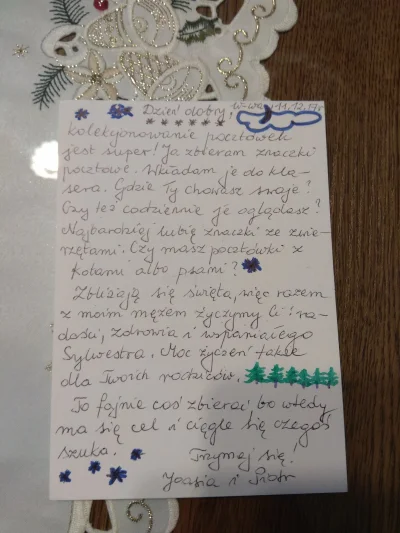 Dzień dobry, W-wa, 11.12.17r
kolekcjonowanie pocztówek
jest super! Ja zbieram znaczki
pocztowe. Wkładam je do kla-
sera. Gdzie Ty chowasz swoje?
Czy też codziennie je oglądasz?
Najbardziej lubię znaczki ze zwie-
rzętami. Czy masz pocztówki z
kotami albo psami?
Zbliżają się święta, więc razem
z moim mężem życzymy Ci: ra-
dości, zdrowia i wspaniałego
Sylwestra. Moc życzeń także
dla Twoich rodziców.
To fajnie coś zbierać bo wtedy
ma się cel i ciągle się czegoś
szuka.
Trzymaj się!
Joasia i Piotr